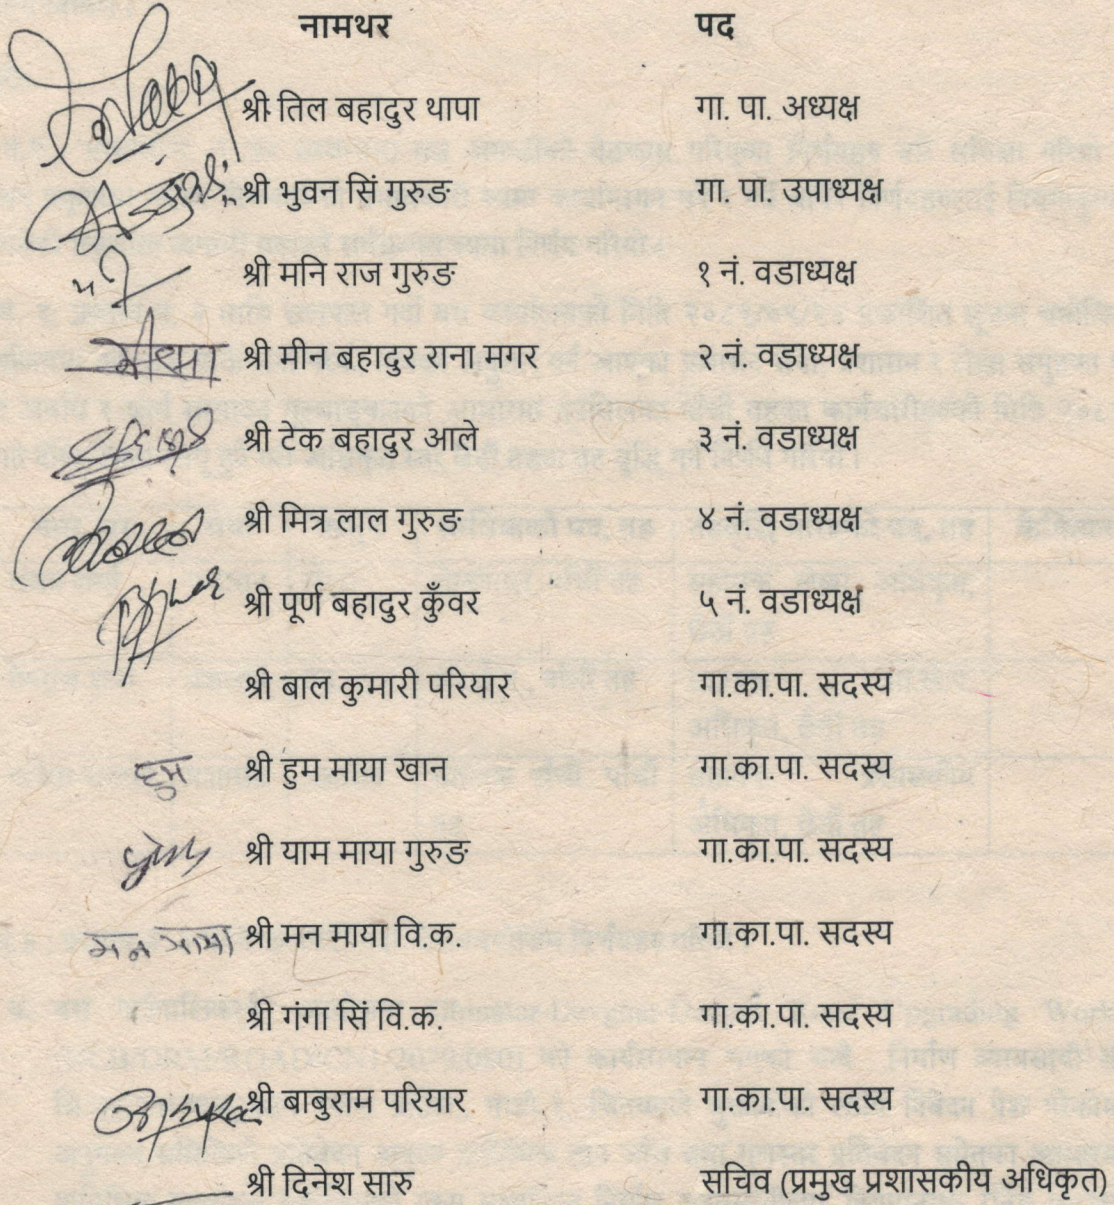 नामथर पद
श्री तिल बहादुर थापा गा. पा. अध्यक्ष
श्री भुवन सिं गुरुङ गा. पा. उपाध्यक्ष
श्री मनि राज गुरुङ १ नं. वडाध्यक्ष
श्री मीन बहादुर राना मगर २ नं. वडाध्यक्ष
श्री टेक बहादुर आले ३ नं. वडाध्यक्ष
श्री मित्र लाल गुरुङ ४ नं. वडाध्यक्ष
श्री पूर्ण बहादुर कुँवर ५ नं. वडाध्यक्ष
श्री बाल कुमारी परियार गा.का.पा. सदस्य
हुम श्री हुम माया खान गा.का.पा. सदस्य
श्री याम माया गुरुङ गा.का.पा. सदस्य
मन माया श्री मन माया वि.क. गा.का.पा. सदस्य
श्री गंगा सिं वि.क. गा.का.पा. सदस्य
श्री बाबुराम परियार गा.का.पा. सदस्य
श्री दिनेश सारु सचिव (प्रमुख प्रशासकीय अधिकृत)